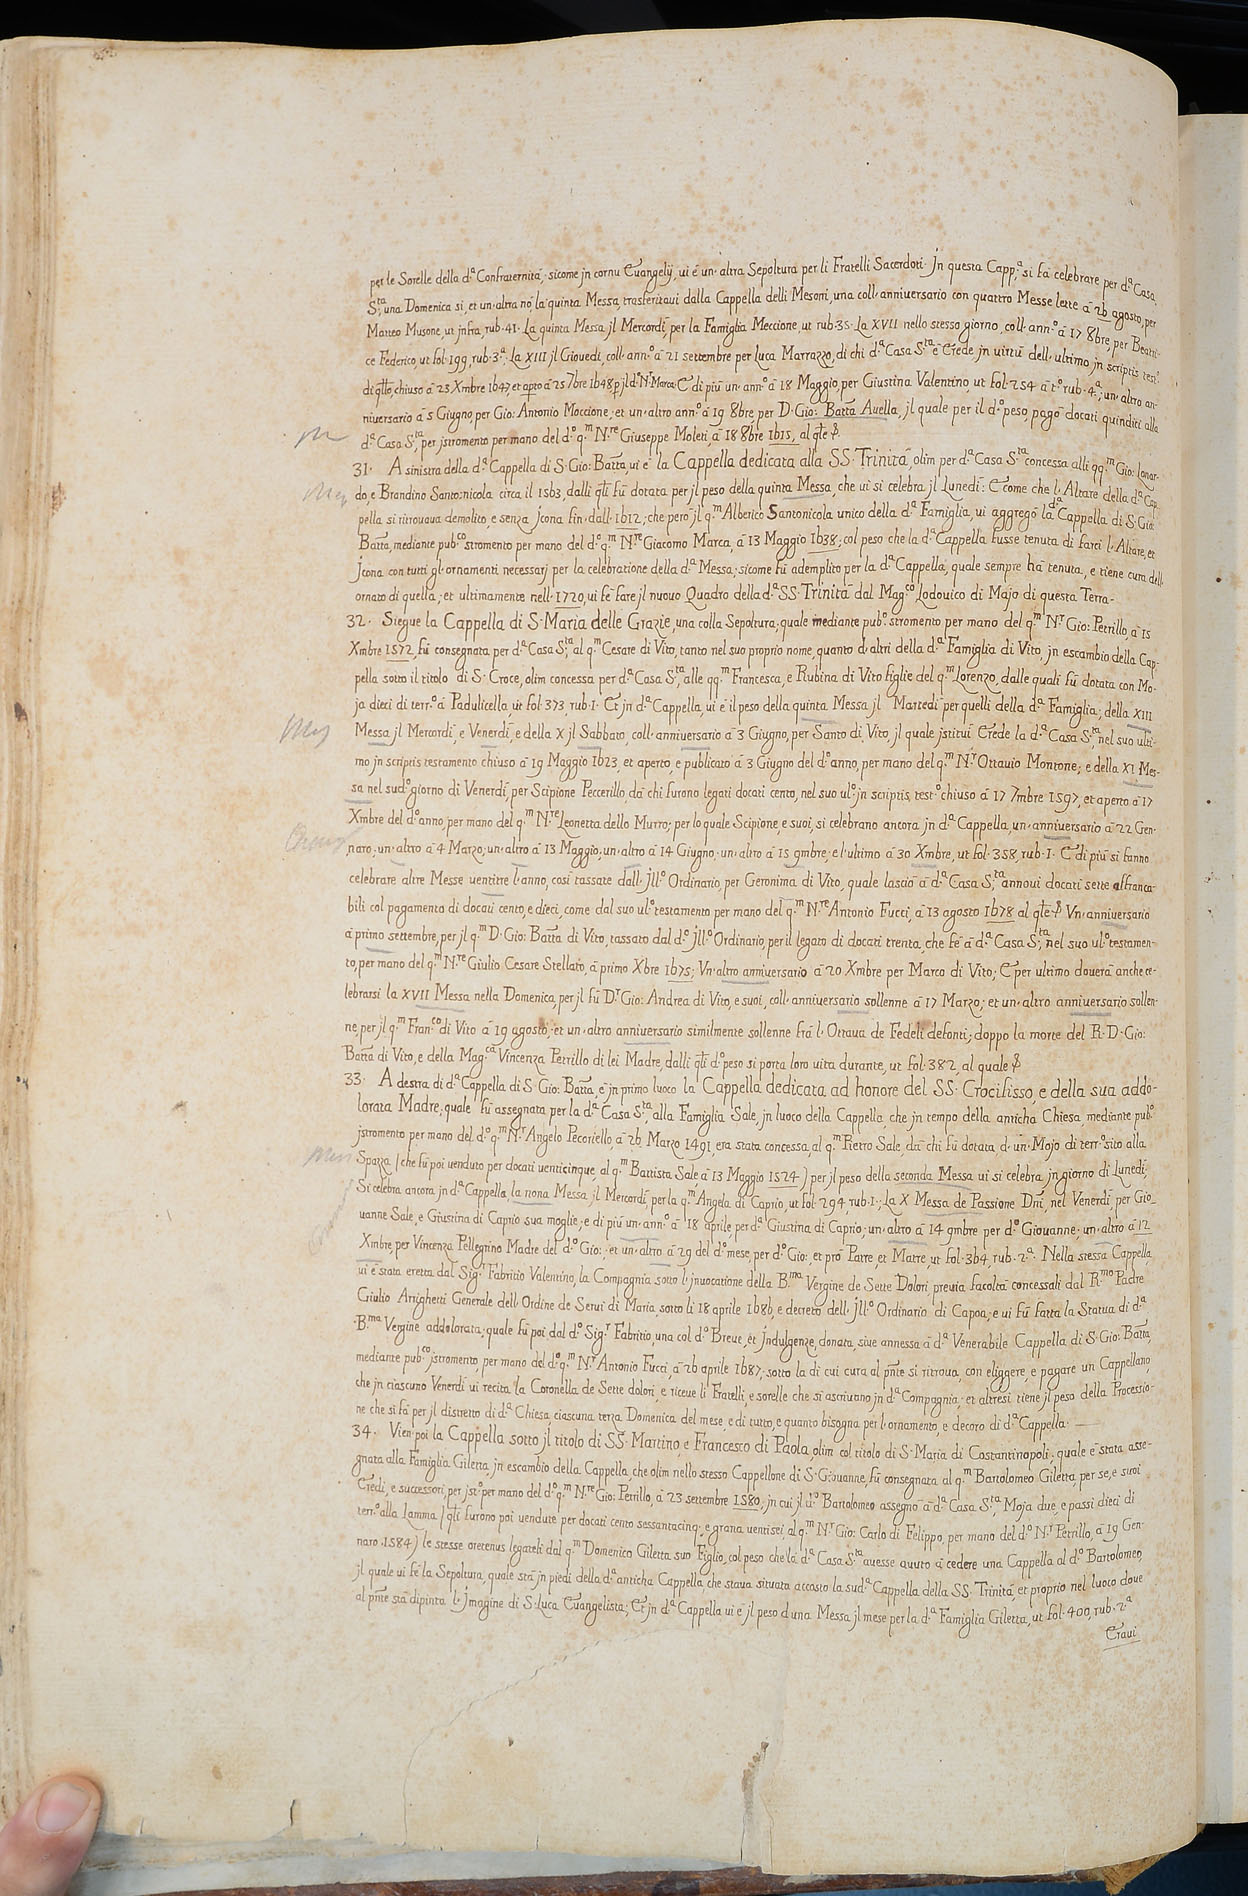 per le Sorelle della d.ª Confraternità, sicome jn cornu Evangelij, ui è un'altra Sepoltura per li Fratelli Sacerdoti. Jn questa Capp.ª si fà celebrare per d.ª Casa
S.ta, una Domenica si, et un'altra nò la quinta Messa, trasferitaui dalla Cappella delli Mesoni, una coll'anniuersario con quattro Messe lette à 26 agosto, per
Matteo Musone, ut jnfra, rub. 41. La quinta Messa jl Mercordì, per la Famiglia Meccione, ut rub. 35. La XVII nello stesso giorno, coll'ann.º à 17 8bre, per Beatri-
ce Federico, ut fol. 199, rub. 3.ª; La XIII jl Giouedi, coll'ann.º à 21 settembre per Luca Marrazzo, di chi d.ª Casa S.ta è Erede jn uirtù dell'ultimo jn scriptis test.º
di q̃llo, chiuso à 23 Xmbre 1647, et apto à 25 7bre 1648 p jl d.º N.r Marca. E di più un'ann.º à 18 Maggio, per Giustina Valentino, ut fol. 254 à t.º rub. 4.ª; un'altro an-
niuersario à 5 Giugno, per Gio: Antonio Moccione; et un'altro ann.º à 19 8bre per D. Gio: Batt̃a Auella, jl quale per il d.º peso, pagò docati quindici alla
d.ª Casa S.ta, per jstromento per mano del d.º q.m N.re Giuseppe Moleti à 18 8bre 1615, al q̃le &
31. A sinistra della d.ª Cappella di S. Gio: Batt̃a, ui è la Cappella dedicata alla SS. Trinità, olim per d.ª Casa S.ta concessa alli qq.m Gio: Lonar-
do, e Brandino Santonicola circa il 1563, dalli q̃li fù dotata per jl peso della quinta Messa, che ui si celebra jl Lunedì: E come che l'Altare della d.ª Cap-
pella si ritrouaua demolito, e senza Jcona fin dall'1612; che però jl q.m Alberico Santonicola unico della d.ª Famiglia, ui aggregò la d.ª Cappella di S. Gio:
Batt̃a, mediante pub.co stromento per mano del d.º q.m N.re Giacomo Marca, à 13 Maggio 1638; col peso che la d.ª Cappella fusse tenuta di farci l'Altare, et
Jcona con tutti gl'ornamenti necessarj per la celebratione della d.ª Messa; sicome fù adempito per la d.ª Cappella, quale sempre hà tenuta, e tiene cura dell'
ornato di quella; et ultimamente nell'1720, ui fè fare jl nuouo Quadro della d.ª SS. Trinità dal Mag.co Lodouico di Majo di questa Terra-
32. Siegue la Cappella di S. Maria delle Grazie, una colla Sepoltura; quale mediante pub.º stromento per mano del q.m N.r Gio: Petrillo, à 15
Xmbre 1572, fù consegnata per d.ª Casa S.ta, al q.m Cesare di Vito, tanto nel suo proprio nome, quanto d'altri della d.ª Famiglia di Vito, jn escambio della Cap-
pella sotto il titolo di S. Croce, olim concessa per d.ª Casa S.ta, alle qq.m Francesca, e Rubina di Vito figlie del q.m Lorenzo, dalle quali fù dotata con Mo-
ja dieci di terr.º à Padulicella, ut fol. 373, rub. 1. Et jn d.ª Cappella, ui è il peso della quinta Messa jl Martedì per quelli della d.ª Famiglia; della XIII
Messa jl Mercordì, e Venerdì, e della X jl Sabbato, coll'anniuersario à 3 Giugno, per Santo di Vito, jl quale jstituì Erede la d.ª Casa S.ta, nel suo ulti-
mo jn scriptis testamento chiuso à 19 Maggio 1623, et aperto, e publicato à 3 Giugno del d.º anno, per mano del q.m N.r Ottauio Montone; e della XI Mes-
sa nel sud.º giorno di Venerdì, per Scipione Peccerillo, dà chi furono legati docati cento, nel suo ul.º jn scriptis test.º chiuso à 17 7mbre 1597, et aperto à 17
Xmbre del d.º anno, per mano del q.m N.re Leonetta dello Murro; per lo quale Scipione, e suoi, si celebrano ancora jn d.ª Cappella, un'anniuersario à 22 Gen-
naro; un'altro à 4 Marzo; un'altro à 13 Maggio; un'altro à 14 Giugno; un'altro à 15 9mbre; e l'ultimo à 30 Xmbre, ut fol. 358, rub. 1. E di più si fanno
celebrare altre Messe uentitre l'anno, così tassate dall'Jll.º Ordinario, per Geronima di Vito, quale lasciò à d.ª Casa S.ta annoui docati sette affranca-
bili col pagamento di docati cento, e dieci, come dal suo ul.º testamento per mano del q.m N.re Antonio Fucci, à 13 agosto 1678 al q̃le & Vn'anniuersario
à primo settembre, per jl q.m D. Gio: Batt̃a di Vito, tassato dal d.º Jll.º Ordinario, per il legato di docati trenta, che fè à d.ª Casa S.ta, nel suo ul.º testamen-
to, per mano del q.m N.re Giulio Cesare Stellato, à primo Xbre 1675; Vn'altro anniuersario à 20 Xmbre per Marco di Vito; E per ultimo douerà anche ce-
lebrarsi la XVII Messa nella Domenica, per jl fù D.r Gio: Andrea di Vito, e suoi, coll'anniuersario sollenne à 17 Marzo; et un'altro anniuersario sollen-
ne, per jl q.m Fran.co di Vito à 19 agosto; et un'altro anniuersario similmente sollenne frà l'Ottaua de Fedeli defonti; doppo la morte del R. D. Gio:
Batt̃a di Vito, e della Mag.ca Vincenza Petrillo di lei Madre, dalli q̃li d.º peso si porta loro uita durante, ut fol. 382, al quale &
33. A destra di d.ª Cappella di S. Gio: Batt̃a, è jn primo luoco la Cappella dedicata ad honore del SS. Crocifisso, e della sua addo-
lorata Madre; quale fù assegnata per la d.ª Casa S.ta, alla Famiglia Sale, jn luoco della Cappella, che jn tempo della anticha Chiesa, mediante pub.º
jstromento per mano del d.º q.m N.r Angelo Pecoriello, à 26 Marzo 1491, era stata concessa, al q.m Pietro Sale, dà chi fù dotata d'un Mojo di terr.º sito alla
Spazza / che fù poi uenduto per docati uenticinque, al q.m Battista Sale à 13 Maggio 1524 ) per jl peso della seconda Messa ui si celebra, jn giorno di Lunedì;
Si celebra ancora jn d.ª Cappella, la nona Messa jl Mercordì, per la q.m Angela di Caprio, ut fol. 294, rub. 1.; La X Messa de Passione Dñi, nel Venerdì, per Gio-
uanne Sale, e Giustina di Caprio sua moglie; e di più un'ann.º à 18 aprile, per d.ª Giustina di Caprio; un'altro à 14 9mbre per d.º Giouanne; un'altro à 12
Xmbre, per Vincenza Pellegrino Madre del d.º Gio:; et un'altro à 29 del d.º mese, per d.º Gio: et pro Patre, et Matre, ut fol. 364, rub. 2.ª. Nella stessa Cappella,
ui è stata eretta dal Sig.r Fabritio Valentino, la Compagnia sotto l'jnuocatione della B.ma Vergine de Sette Dolori, preuia facoltà concessali dal R.mo Padre
Giulio Arrighetti Generale dell'Ordine de Serui di Maria, sotto li 18 aprile 1686, e decreto dell'Jll.º Ordinario di Capoa; e ui fù fatta la Statua di d.ª
B.ma Vergine addolorata; quale fù poi dal d.º Sig.r Fabritio, una col d.º Breue, et Jndulgenze, donata, siue annessa à d.ª Venerabile Cappella di S. Gio: Batt̃a,
mediante pub.co jstromento, per mano del d.º q.m N.r Antonio Fucci, à 26 aprile 1687; sotto la di cui cura al pñte si ritroua, con eliggere, e pagare un Cappellano
che jn ciascuno Venerdì ui recita la Coronella de Sette dolori, e riceue li Fratelli, e sorelle che si ascriuano jn d.ª Compagnia; et altresì tiene jl peso della Processio-
ne che si fà per jl distretto di d.ª Chiesa, ciascuna terza Domenica del mese, e di tutto, e quanto bisogna per l'ornamento, e decoro di d.ª Cappella.
34. Vien poi la Cappella sotto jl titolo di SS. Martino, e Francesco di Paola, olim col titolo di S. Maria di Costantinopoli; quale è stata asse-
gnata alla Famiglia Giletta, jn escambio della Cappella, che olim nello stesso Cappellone di S. Giouanne, fù consegnata al q.m Bartolomeo Giletta, per se, e suoi
Eredi, e successori, per jst.º per mano del d.º q.m N.re Gio: Petrillo, à 23 settembre 1580, jn cui jl d.º Bartolomeo assegnò à d.ª Casa S.ta Moja due, e passi dieci di
terr.º alla Lamma / q̃li furono poi uendute per docati cento sessantacinq;, e grana uentisei, al q.m N.r Gio: Carlo di Felippo, per mano del d.º N.r Petrillo, à 19 Gen-
naro 1584 ) le stesse oretenus legateli dal q.m Domenico Giletta suo Figlio, col peso che la d.ª Casa S.ta auesse auuto à cedere una Cappella al d.º Bartolomeo,
jl quale ui fè la Sepoltura, quale stà jn piedi della d.ª anticha Cappella, che staua situata accosto la sud.ª Cappella della SS. Trinità, et proprio nel luoco doue
al pñte stà dipinta l'Jmagine di S. Luca Euangelista; Et jn d.ª Cappella ui è jl peso d'una Messa jl mese per la d.ª Famiglia Giletta, ut fol. 400, rub. 2.ª
Eraui